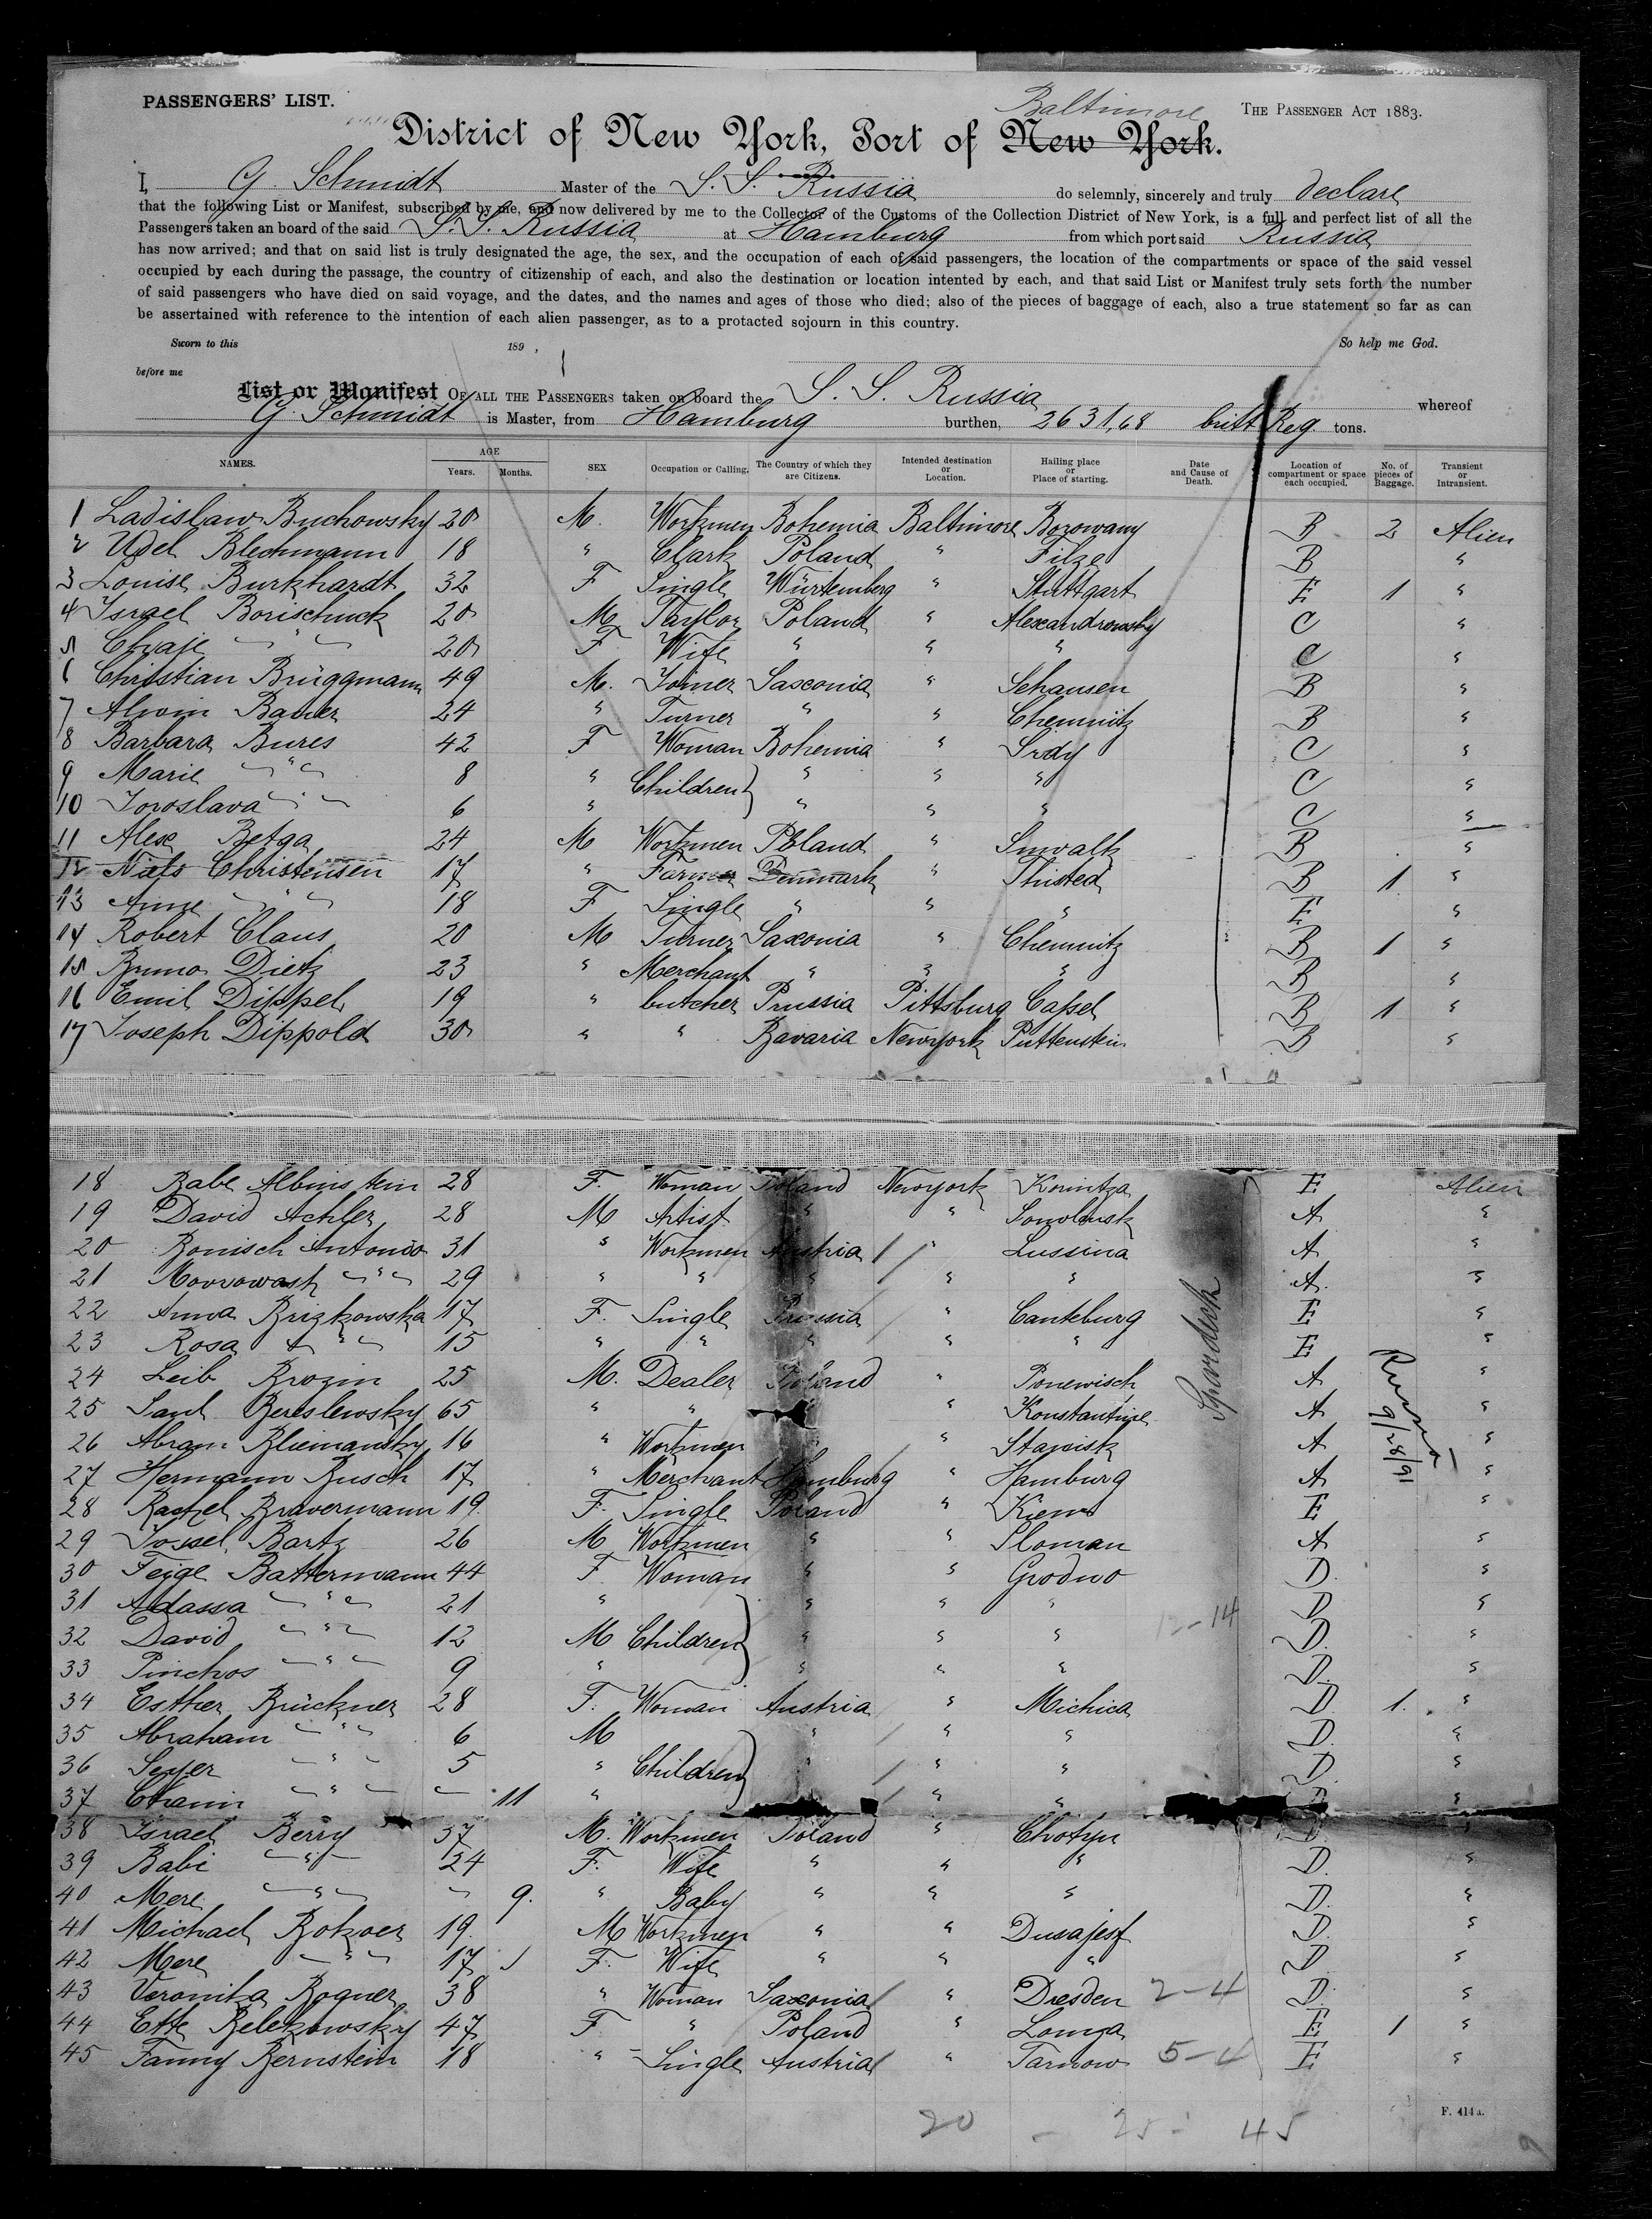 PASSENGERS' LIST.
Baltimore
THE PASSENGER ACT 1883.
District of New York, Port of New York.
I, G. Schmidt Master of the S. S. Russia do selemnly, sincerely and truly declare
that the following List or Manifest, subscribed by me, and now delivered by me to the Collector of the Customs of the Collection District of New York, is a full and perfect list of all the
Passengers taken an board of the said S. S. Russia at Hamburg from which port said Russia
has now arrived; and that on said list is truly designated the age, the sex, and the occupation of each of said passengers, the location of the compartments or space of the said vessel
occupied by each during the passage, the country of citizenship of each, and also the destination or location intented by each, and that said List or Manifest truly sets forth the number
of said passengers who have died on said voyage, and the dates, and the names and ages of those who died; also of the pieces of baggage of each, also a true statement so far as can
be assertained with reference to the intention of each alien passenger, as to a protacted sojourn in this country.
Sworn to this 189 , So help me God.
before me
List or Manifest OF ALL THE PASSENGERS taken on board the S. S. Russia whereof
G. Schmidt is Master, from Hamburg burthen, 2631,68 britt Reg. tons.
NAMES. AGE Years. Months. SEX Occupation or Calling. The Country of which they are Citizens. Intended destination or Location. Hailing place or Place of starting. Date and Cause of Death. Location of compartment or space each occupied. No. of pieces of Baggage. Transient or Intransient.
1 Ladislaw Buchowsky 20 M. Workmen Bohemia Baltimore Borowany B 2 Alien
2 Udel Blechmann 18 " Clark Poland " Filze B "
3 Louise Burkhardt 32 F Single Würtemberg " Stuttgart E 1 "
4 Israel Borischuck 20 M Taylor Poland " Alexandrowsky C "
5 Chaje " 20 F Wife " " " C "
6 Christian Brüggmann 49 M. Joiner Sasconia " Sehausen B "
7 Alwin Bauer 24 " Turner " " Chemnitz B "
8 Barbara Bures 42 F Woman Bohemia " Srdy C "
9 Marie " 8 " Children " " " C "
10 Joroslava " 6 " " " " C "
11 Alex Betga 24 M Workmen Poland " Suwalk B "
12 Niels Christensen 17 " Farmer Denmark " Thisted B 1 "
13 Anne " 18 F Single " " " E "
14 Robert Claus 20 M Turner Saxonia " Chemnitz B 1 "
15 Bruno Dietz 23 " Merchant " " " B "
16 Emil Dippel 19 " butcher Prussia Pittsburg Cassel B 1 "
17 Joseph Dippold 30 " " Bavaria Newyork Puttenstein B "
18 Babe Albinstein 28 F. Woman Poland Newyork Krinitza E Alien
19 David Achler 28 M Artist " " A "
20 Ronisch Antonio 31 " Workmen Austria " Lussina A "
21 " 29 " " " " " A. "
22 Anna Brizkowska 17 F. Single Prussia " Canteburg E "
23 Rosa " 15 " " " " " E "
24 Leib Brozin 25 M. Dealer Poland " Ponewisch A "
25 Saul Bereslewsky 65 " " " Konstantine A "
26 Abram Bliemansky 16 " Workmen " " Stawisk A "
27 Hermann Busch 17 " Merchant Hamburg " Hamburg A "
28 Rachel Bravermann 19. F. Single Poland " Kiew E "
29 Jossel Bartz 26 M Workmen " " Sloman A "
30 Feige Battermann 44 F Woman " " Grodno D. "
31 Adassa " 21 " " " " D "
32 David " 12 M Children " " " D. "
33 Pinchos " 9 " " " " D. "
34 Esther Brückner 28 F. Woman Austria " Michica D. 1. "
35 Abraham " 6 M " " " D. "
36 " 5 " Children " " " D. "
37 Chaim " 11 " " " "
38 Israel Berry 37 M. Workmen Poland " Chotyn D "
39 Babi " 24 F. Wife " " " D. "
40 Mere " 9. " Baby " " " D. "
41 Michael Botzoer 19. M Workmen " " D. "
42 Mere " 17 F. Wife " " " D "
43 Veronika Bogner 38 " Woman Saxonia " Dresden 2-4 D. "
44 Ette Belezowsky 47 F " Poland " Lomza E 1 "
45 Fanny Bernstein 18 " Single Austria " Tarnow 5-4 E "
Spardeck
Russia
9/28/91
-14
20 - 25 - 45
F. 414a.
9